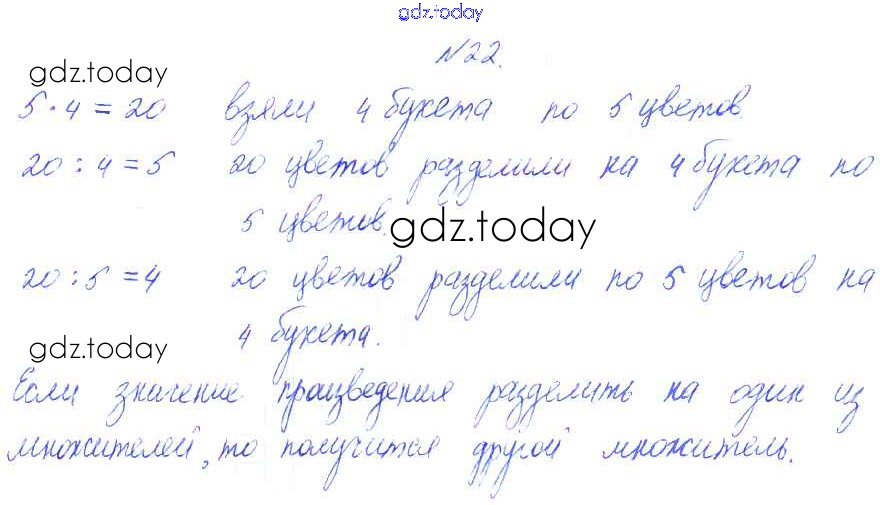 gdz.today
№22.
gdz.today
5·4=20 взяли 4 букета по 5 цветов.
20:4=5 20 цветов разделили на 4 букета по
5 цветов.
gdz.today
20:5=4 20 цветов разделили по 5 цветов на
4 букета.
gdz.today
Если значение произведения разделить на один из
множителей, то получится другой множитель.